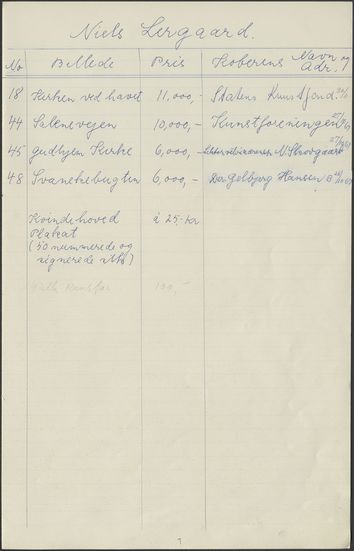 Niels Lergaard.
No Billede Pris Køberens Navn og Adr.
18 Kirken ved havet 11,000,- Statens Kunstfond.
44 Salenevejen 10,000,- Kunstforeningen
45 Gudhjem Kirke 6,000,- N. Skovgaard
48 Svanekebugten 6,000,- Hansen
Kvindehoved à 25,- kr
Plakat
(50 nummerede og
signerede
100,-